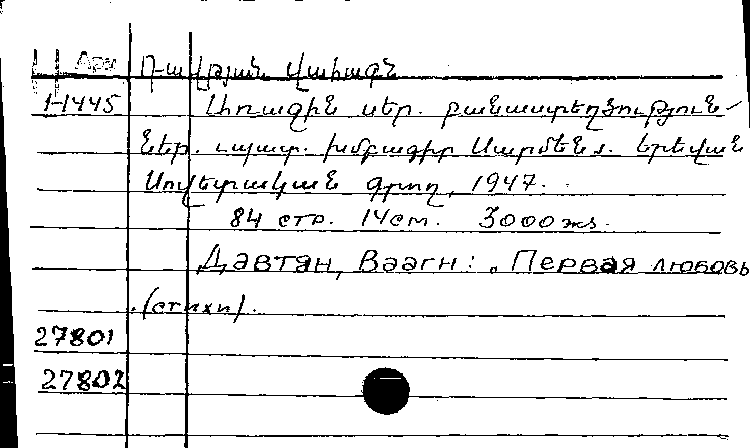 Арм Դավթյան Վահագն
1-1445 Առաջին սեր. բանաստեղծություն-
ներ. պատ. խմբագիր Սարմեն. Երեվան
Սովետական գրող, 1947.
84 стр. 14 см. 3000 экз.
Давтян, Ваагн: . Первая любовь
. (стихи).
27801
27802